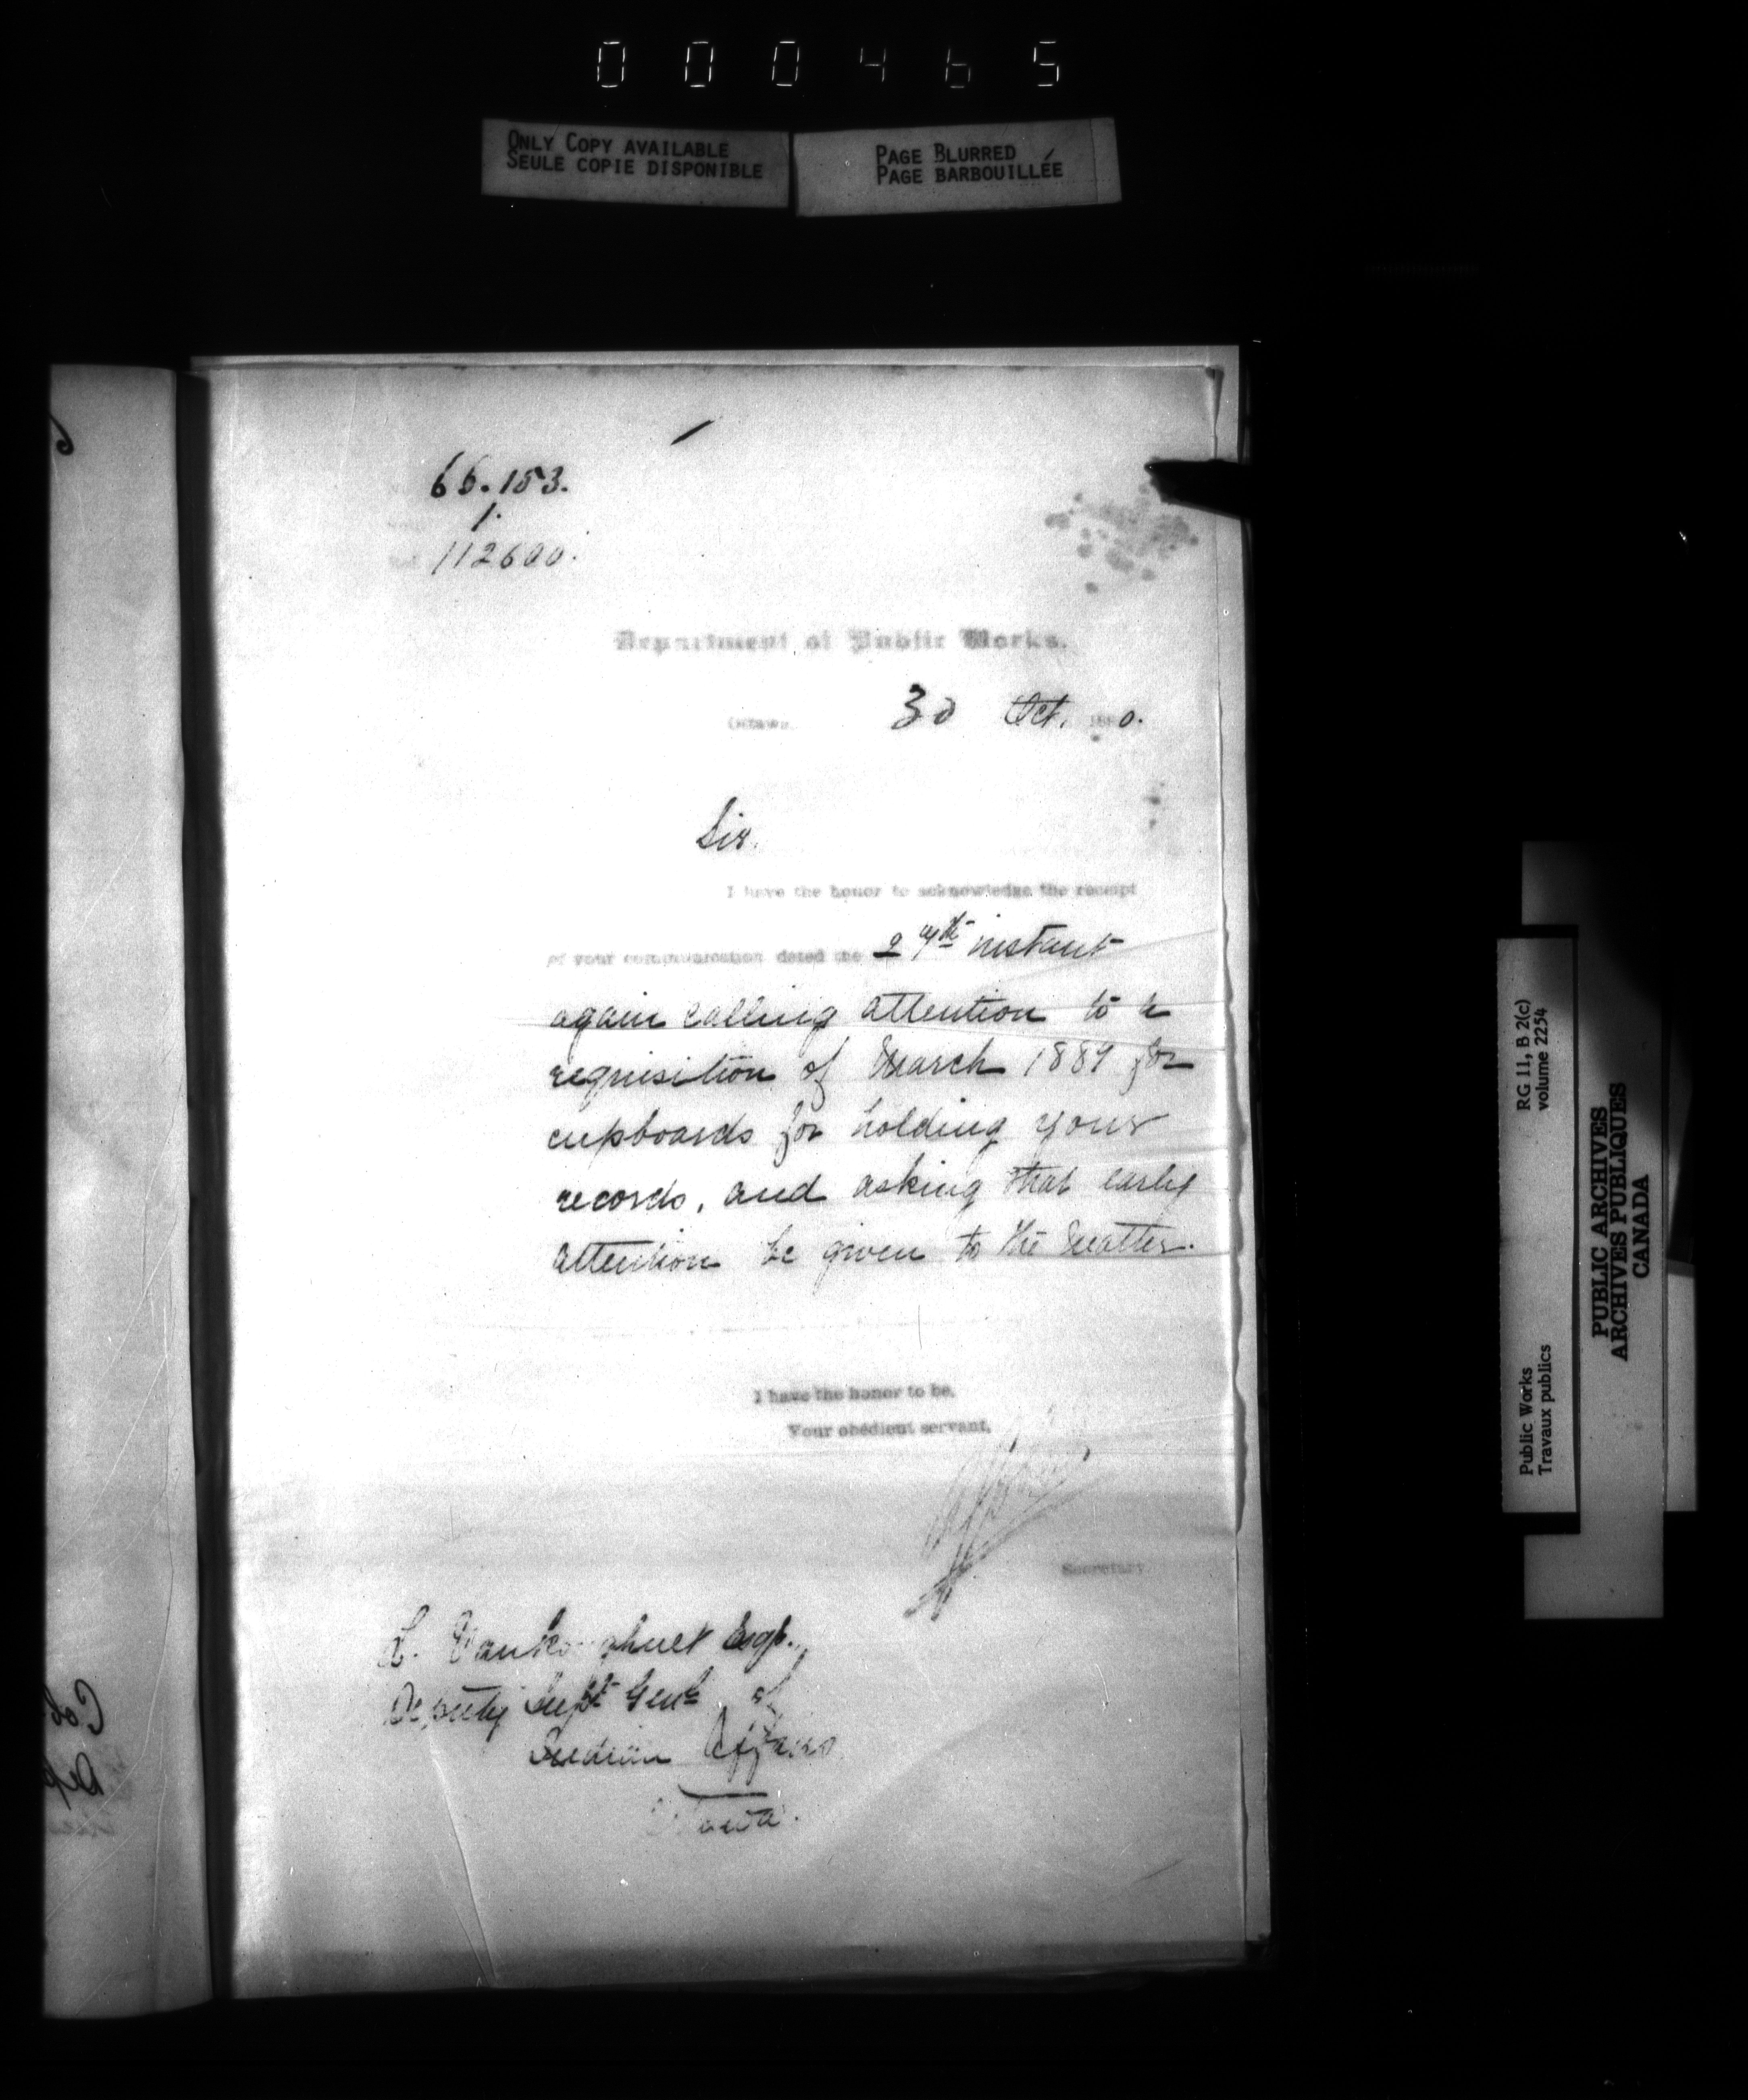 000465
ONLY COPY AVAILABLE
SEULE COPIE DISPONIBLE
PAGE BLURRED
PAGE BARBOUILLÉE
66.153.
1.
112600.
Department of Public Works.
Ottawa, 30 Oct. 1890.
Sir.
I have the honor to acknowledge the receipt
of your communication dated the 29th instant
again calling attention to a
requisition of March 1889 for
cupboards for holding your
records, and asking that early
attention be given to the matter.
I have the honor to be,
Your obedient servant,
Secretary.
L. Vankoughnet Esqr.,
Deputy Supt Genl of
Indian Affairs
Ottawa.
RG 11, B 2(c)
volume 2254
Public Works
Travaux publics
PUBLIC ARCHIVES
ARCHIVES PUBLIQUES
CANADA